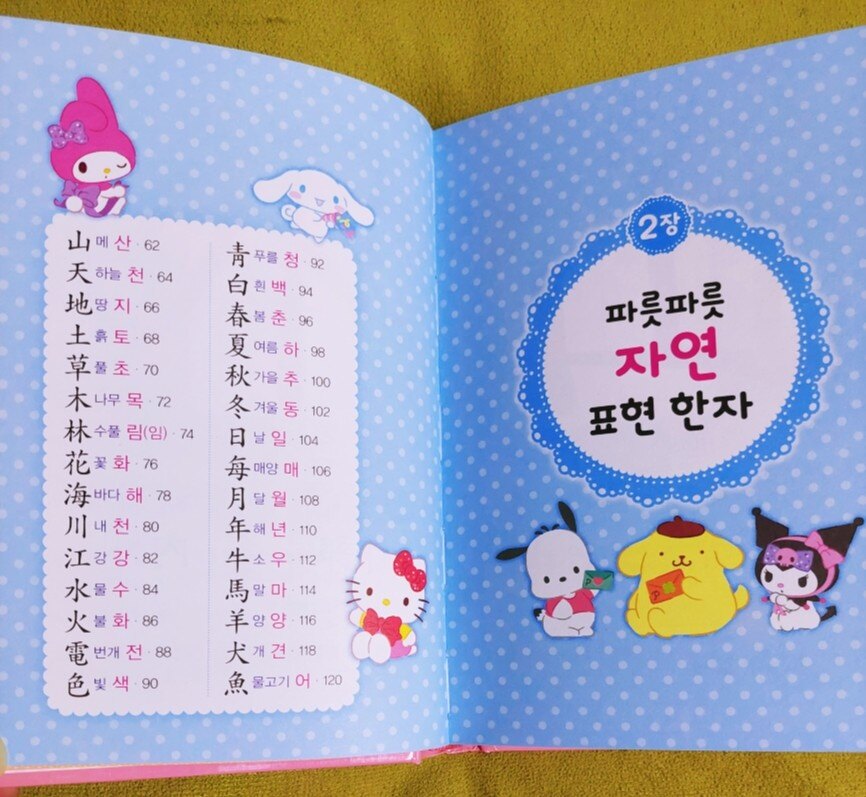 山 메 산 · 62
天 하늘 천 · 64
地 땅 지 · 66
土 흙 토 · 68
草 풀 초 · 70
木 나무 목 · 72
林 수풀 림(임) · 74
花 꽃 화 · 76
海 바다 해 · 78
川 내 천 · 80
江 강 강 · 82
水 물 수 · 84
火 불 화 · 86
電 번개 전 · 88
色 빛 색 · 90
靑 푸를 청 · 92
白 흰 백 · 94
春 봄 춘 · 96
夏 여름 하 · 98
秋 가을 추 · 100
冬 겨울 동 · 102
日 날 일 · 104
每 매양 매 · 106
月 달 월 · 108
年 해 년 · 110
牛 소 우 · 112
馬 말 마 · 114
羊 양 양 · 116
犬 개 견 · 118
魚 물고기 어 · 120
2장
파릇파릇
자연
표현 한자